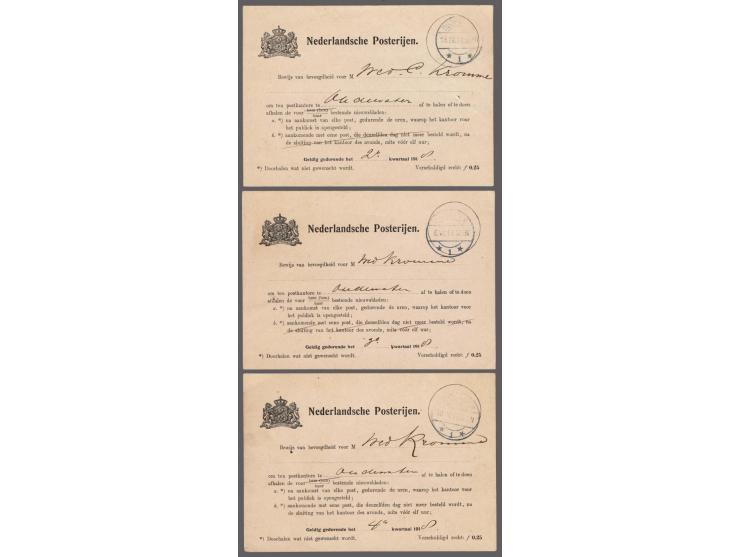 Nederlandsche Posterijen.
Bewijs van bevoegdheid voor M Wed. C. Kromme
om ten postkantore te Oudewater af te halen of te doen
afhalen de voor hem (hen) haar bestemde nieuwsbladen:
a. *) na aankomst van elke post, gedurende de uren, waarop het kantoor voor
het publiek is opengesteld;
b. *) aankomende met eene post, die denzelfden dag niet meer besteld wordt, na
de sluiting van het kantoor des avonds, mits vóór elf uur;
Geldig gedurende het 2e kwartaal 1918.
*) Doorhalen wat niet gewenscht wordt. Verschuldigd recht: f 0.25
* 1 *
Nederlandsche Posterijen.
Bewijs van bevoegdheid voor M Wed Kromme
om ten postkantore te Oudewater af te halen of te doen
afhalen de voor hem (hen) haar bestemde nieuwsbladen:
a. *) na aankomst van elke post, gedurende de uren, waarop het kantoor voor
het publiek is opengesteld;
b. *) aankomende met eene post, die denzelfden dag niet meer besteld wordt, na
de sluiting van het kantoor des avonds, mits vóór elf uur;
Geldig gedurende het 3e kwartaal 1918.
*) Doorhalen wat niet gewenscht wordt. Verschuldigd recht: f 0.25
* 1 *
Nederlandsche Posterijen.
Bewijs van bevoegdheid voor M Wed Kromme
om ten postkantore te Oudewater af te halen of te doen
afhalen de voor hem (hen) haar bestemde nieuwsbladen:
a. *) na aankomst van elke post, gedurende de uren, waarop het kantoor voor
het publiek is opengesteld;
b. *) aankomende met eene post, die denzelfden dag niet meer besteld wordt, na
de sluiting van het kantoor des avonds, mits vóór elf uur;
Geldig gedurende het 4e kwartaal 1918.
*) Doorhalen wat niet gewenscht wordt. Verschuldigd recht: f 0.25
* 1 *